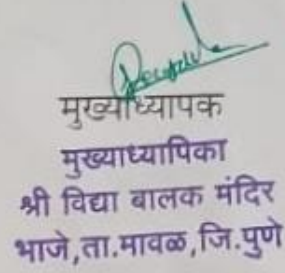 मुख्याध्यापक
मुख्याध्यापिका
श्री विद्या बालक मंदिर
भाजे,ता.मावळ,जि.पुणे